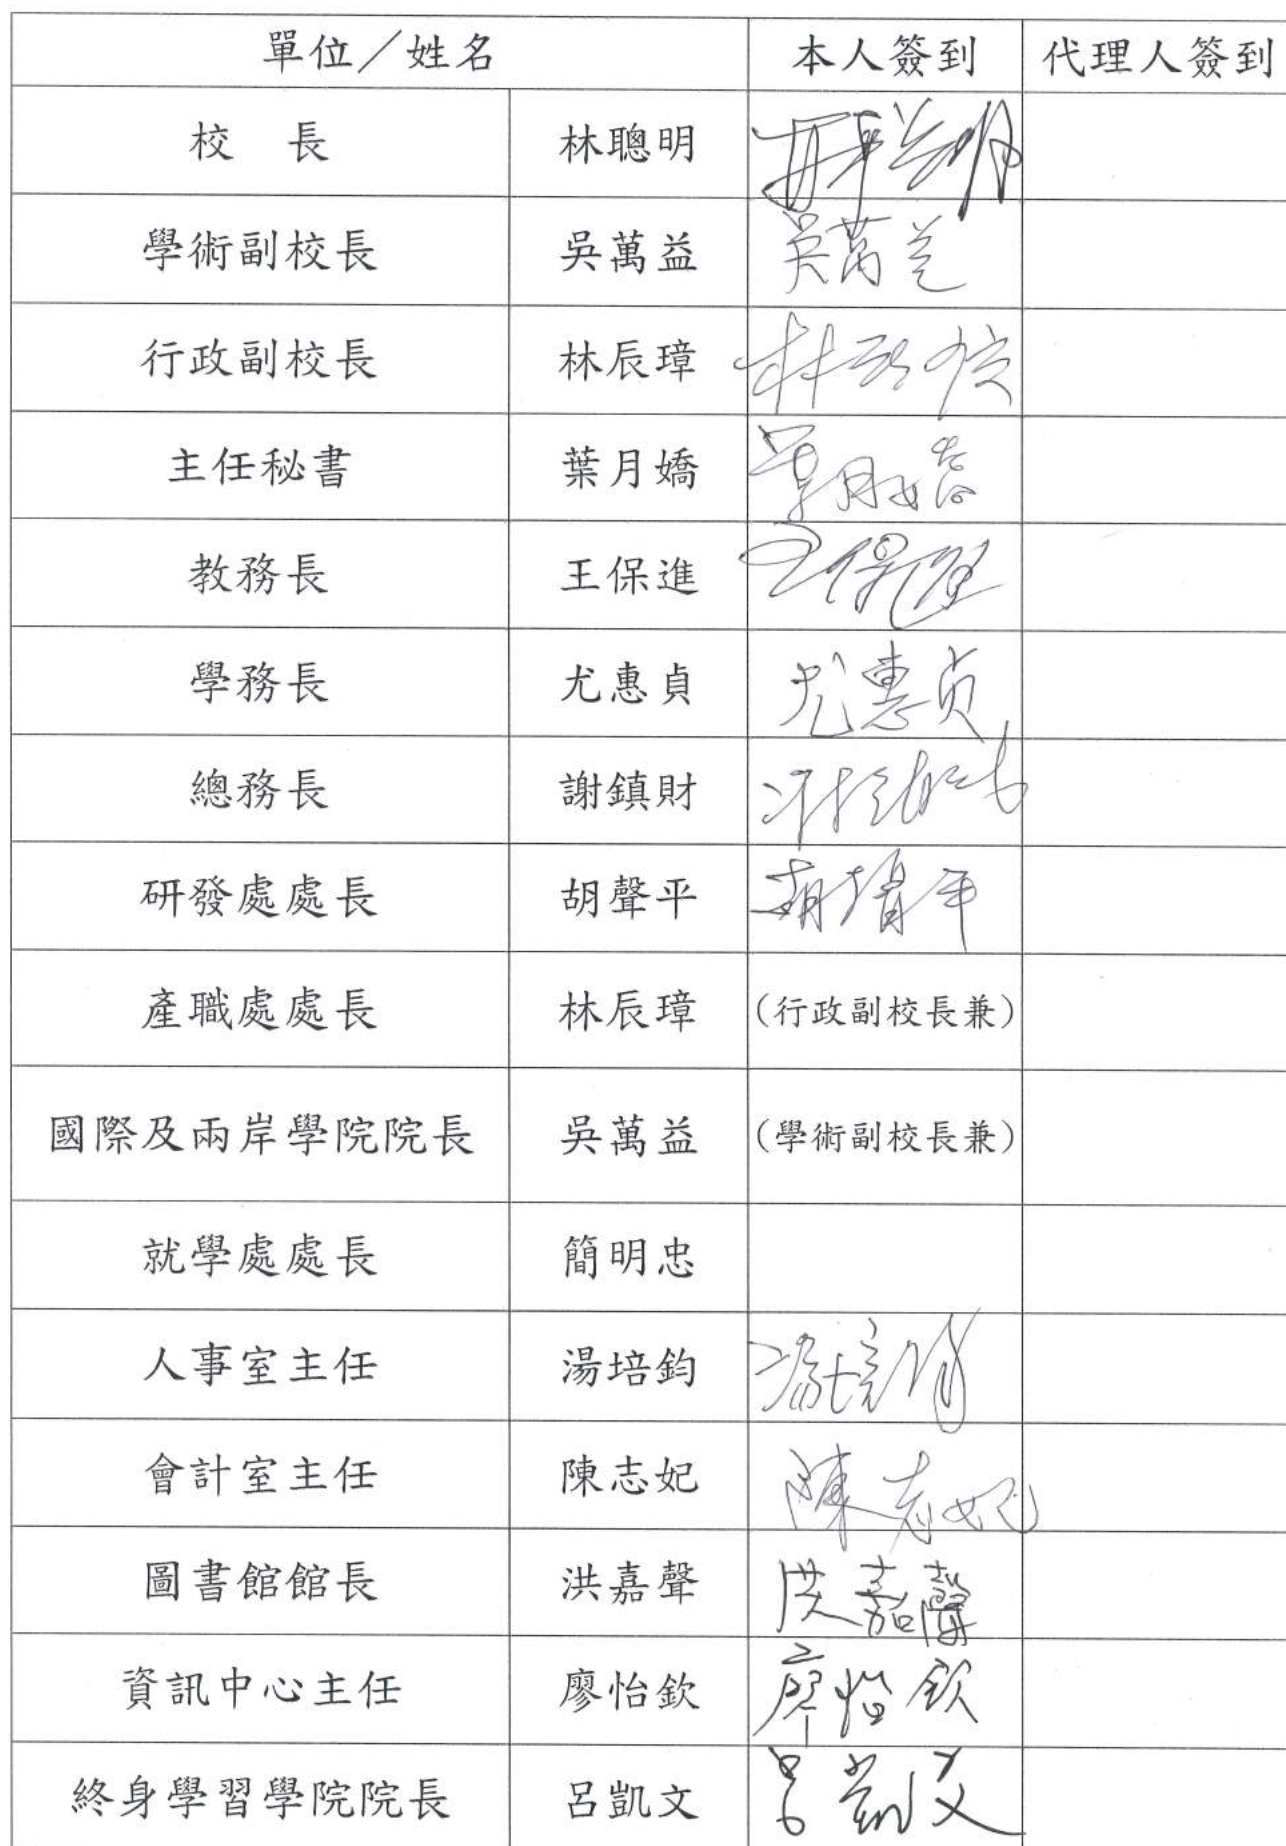 單位／姓名 本人簽到 代理人簽到
校 長 林聰明
學術副校長 吳萬益 吳萬益
行政副校長 林辰璋
主任秘書 葉月嬌
教務長 王保進 王保進
學務長 尤惠貞 尤惠貞
總務長 謝鎮財
研發處處長 胡聲平
產職處處長 林辰璋 (行政副校長兼)
國際及兩岸學院院長 吳萬益 (學術副校長兼)
就學處處長 簡明忠
人事室主任 湯培鈞
會計室主任 陳志妃 陳志妃
圖書館館長 洪嘉聲 洪嘉聲
資訊中心主任 廖怡欽 廖怡欽
終身學習學院院長 呂凱文 呂凱文